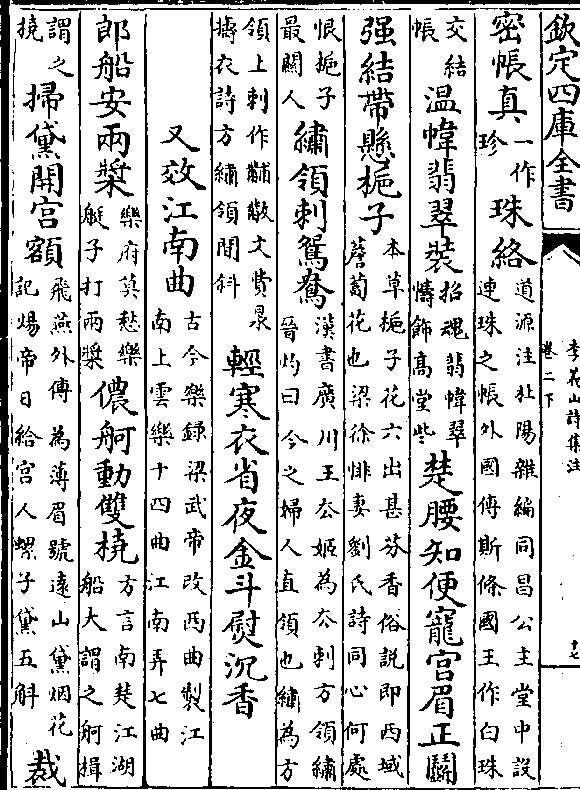 欽定四庫全書
李義山詩集注
卷二下
十七
密帳真一作珍珠絡道源注杜陽雜編同昌公主堂中設連珠之帳外國傳斯條國王作白珠
交結帳温幃翡翠裝招魂翡幃翠幬飾高堂些楚腰知便寵宮眉正鬬
强結帶懸梔子本草梔子花六出甚芬香俗説即西域薝蔔花也梁徐悱妻劉氏詩同心何處
恨梔子最關人繡領刺鴛鴦漢書廣川王去姬為去刺方領繡晉灼曰今之婦人直領也繡為方
領上刺作黼黻文費昶擣衣詩方繡領間斜輕寒衣省夜金斗熨沉香
又效江南曲古今樂録梁武帝改西曲製江南上雲樂十四曲江南弄七曲
郎船安兩槳樂府莫愁樂艇子打兩槳儂舸動雙橈方言南楚江湖船大謂之舸楫
謂之橈掃黛開宮額飛燕外傳為薄眉號遠山黛烟花記煬帝日給宮人螺子黛五斛裁